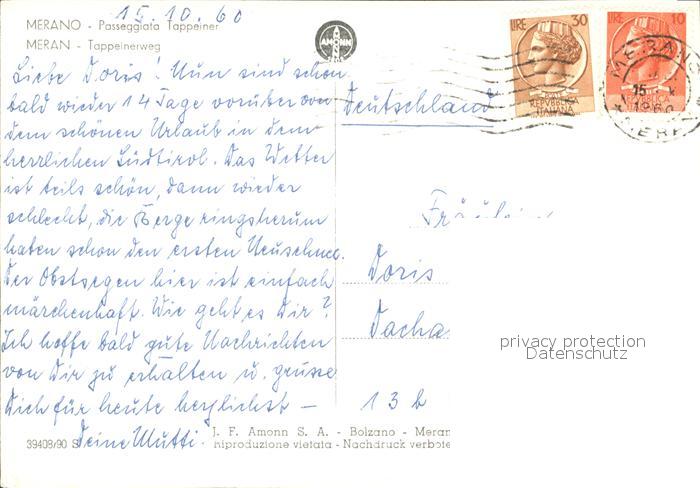 15.10.60
MERANO - Passeggiata Tappeiner
MERAN - Tappeinerweg
AMONN
LIRE 30
REPVBBLICA
ITALIANA
LIRE 10
REPVBBLICA
ITALIANA
MERANO
15
1960
Liebe Doris! Nun sind schon
bald wieder 14 Tage vorüber von
dem schönen Urlaub in dem
herrlichen Südtirol. Das Wetter
ist teils schön, dann wieder
schlecht, die Berge ringsherum
haben schon den ersten Neuschnee.
Der Obstsegen hier ist einfach
märchenhaft. Wie geht es Dir?
Ich hoffe bald gute Nachrichten
von Dir zu erhalten u. grüsse
Dich für heute herzlichst –
Deine Mutti.
Deutschland
Fräulein
Doris
Dacha
13 b
privacy protection
Datenschutz
39408/90 S
J. F. Amonn S. A. - Bolzano - Meran
Riproduzione vietata - Nachdruck verbote